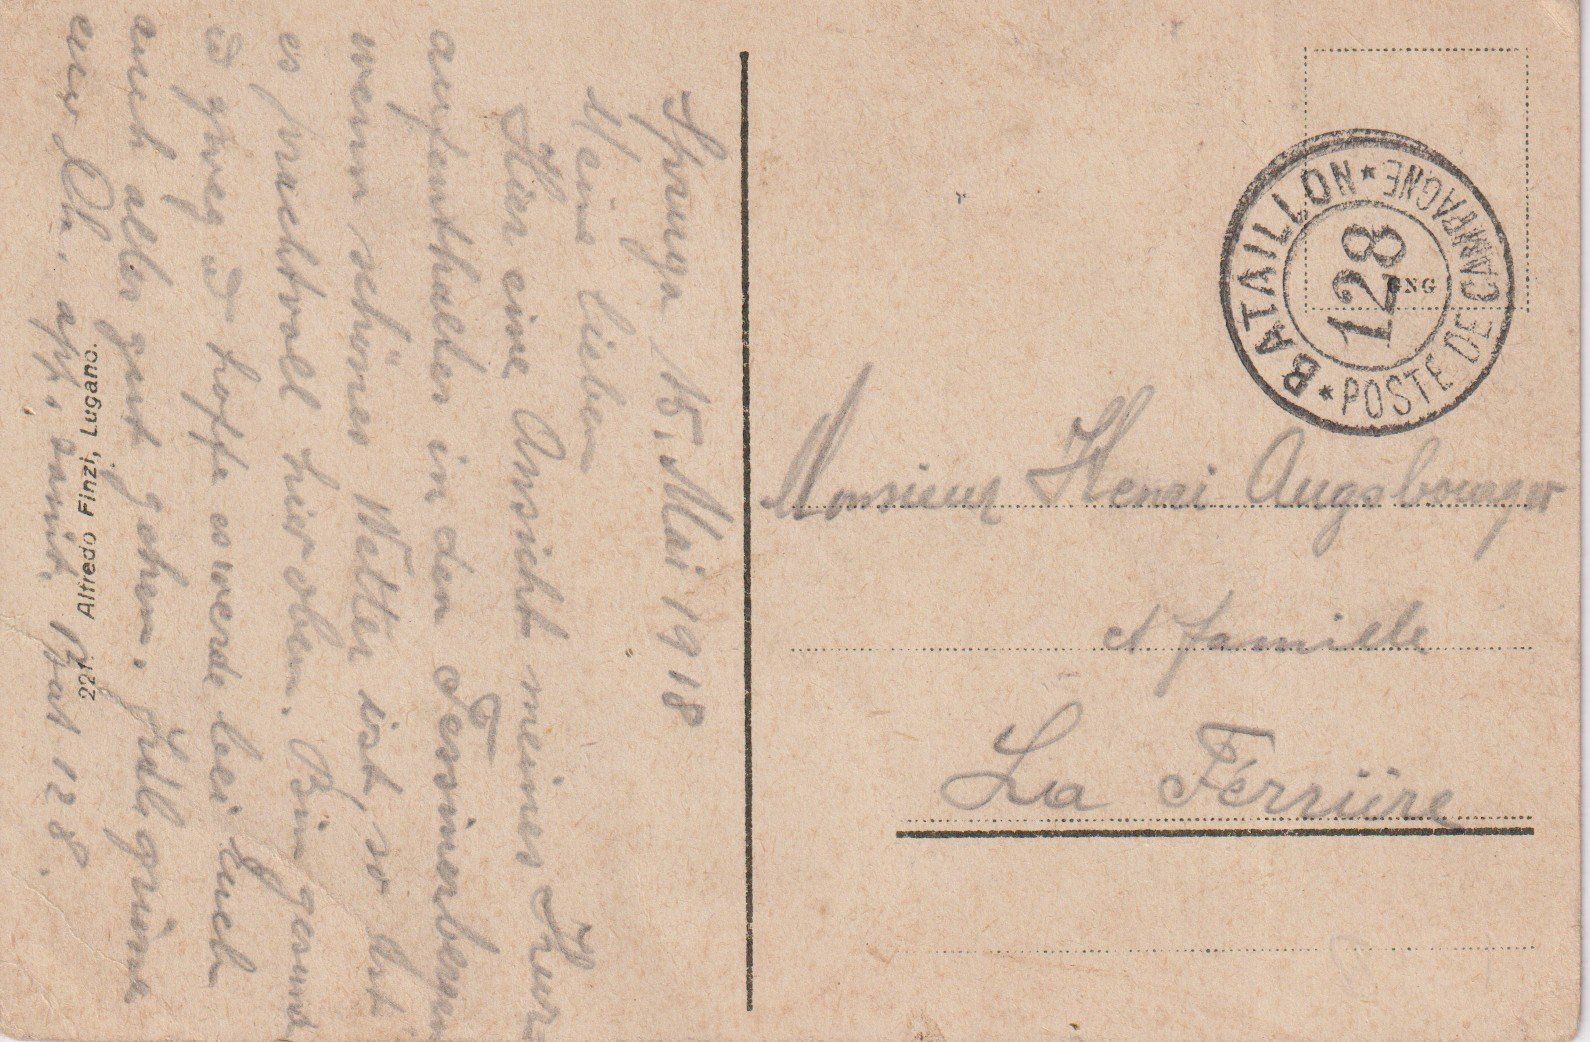 Spruga 15. Mai 1918
Meine Lieben
Hier eine Ansicht meines Kur
aufenthaltes in den Tessinerbergen
wenn schönes Wetter ist, so ist
es prachtvoll hier oben. Bin gesund
& zweg & hoffe es werde bei Euch
auch alles gut gehen. Fdl. grüsst
euer Bat 128.
221 Alfredo Finzi, Lugano.
BATAILLON
128
POSTE DE CAMPAGNE
GNG
Monsieur Henri Augsbourger
et famille
La Férrière